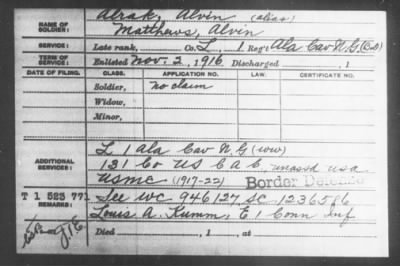 NAME OF SOLDIER: Alrak, Alvin (alias)
Matthews, Alvin
SERVICE: Late rank, Co. L, 1 Reg't Ala Cav N.G. (B.D)
TERM OF SERVICE: Enlisted Nov. 2, 1916 Discharged , 1
DATE OF FILING. CLASS. APPLICATION NO. LAW. CERTIFICATE NO.
Soldier, no claim
Widow,
Minor,
L 1 Ala Cav N.G (WW)
ADDITIONAL SERVICES: 131 Co US C A C, unassd USA
USMC (1917-22) Border Defense
T 1 523 771 See WC 946127, SC 1236586
REMARKS: Louis A. Kumm, E 1 Conn Inf
Died , 1 , at